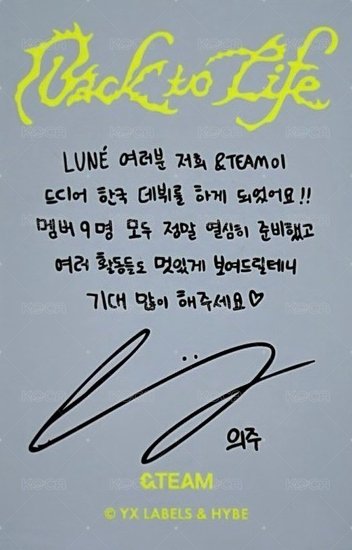 Back to Life
LUNÉ 여러분 저희 &TEAM이
드디어 한국 데뷔를 하게 되었어요!!
멤버 9명 모두 정말 열심히 준비했고
여러 활동들도 멋있게 보여드릴테니
기대 많이 해주세요♡
의주
&TEAM
© YX LABELS & HYBE